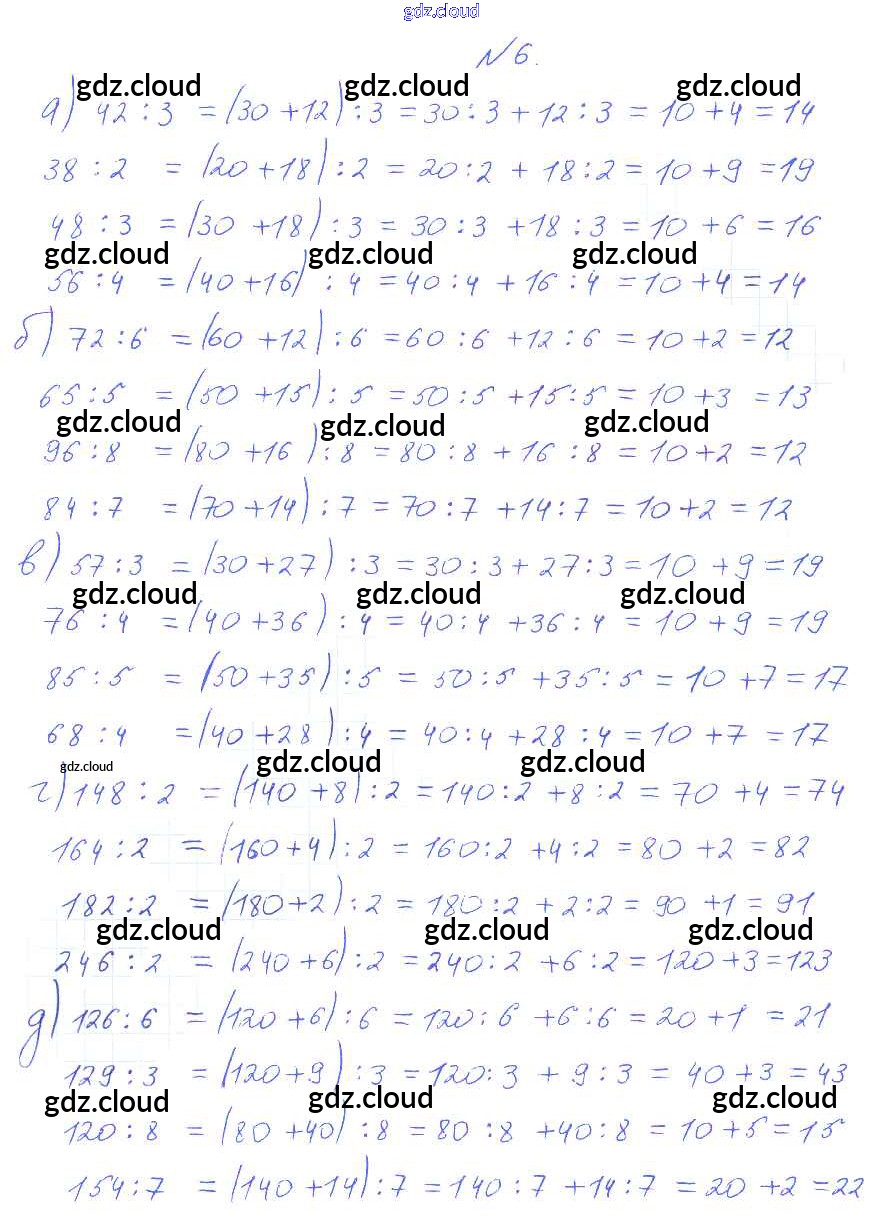 gdz.cloud
№ 6.
gdz.cloud gdz.cloud gdz.cloud
а) 42 : 3 = (30 + 12) : 3 = 30 : 3 + 12 : 3 = 10 + 4 = 14
38 : 2 = (20 + 18) : 2 = 20 : 2 + 18 : 2 = 10 + 9 = 19
48 : 3 = (30 + 18) : 3 = 30 : 3 + 18 : 3 = 10 + 6 = 16
gdz.cloud gdz.cloud gdz.cloud
56 : 4 = (40 + 16) : 4 = 40 : 4 + 16 : 4 = 10 + 4 = 14
б) 72 : 6 = (60 + 12) : 6 = 60 : 6 + 12 : 6 = 10 + 2 = 12
65 : 5 = (50 + 15) : 5 = 50 : 5 + 15 : 5 = 10 + 3 = 13
gdz.cloud gdz.cloud gdz.cloud
96 : 8 = (80 + 16) : 8 = 80 : 8 + 16 : 8 = 10 + 2 = 12
84 : 7 = (70 + 14) : 7 = 70 : 7 + 14 : 7 = 10 + 2 = 12
в) 57 : 3 = (30 + 27) : 3 = 30 : 3 + 27 : 3 = 10 + 9 = 19
gdz.cloud gdz.cloud gdz.cloud
76 : 4 = (40 + 36) : 4 = 40 : 4 + 36 : 4 = 10 + 9 = 19
85 : 5 = (50 + 35) : 5 = 50 : 5 + 35 : 5 = 10 + 7 = 17
68 : 4 = (40 + 28) : 4 = 40 : 4 + 28 : 4 = 10 + 7 = 17
gdz.cloud gdz.cloud gdz.cloud
г) 148 : 2 = (140 + 8) : 2 = 140 : 2 + 8 : 2 = 70 + 4 = 74
164 : 2 = (160 + 4) : 2 = 160 : 2 + 4 : 2 = 80 + 2 = 82
182 : 2 = (180 + 2) : 2 = 180 : 2 + 2 : 2 = 90 + 1 = 91
gdz.cloud gdz.cloud gdz.cloud
246 : 2 = (240 + 6) : 2 = 240 : 2 + 6 : 2 = 120 + 3 = 123
д) 126 : 6 = (120 + 6) : 6 = 120 : 6 + 6 : 6 = 20 + 1 = 21
129 : 3 = (120 + 9) : 3 = 120 : 3 + 9 : 3 = 40 + 3 = 43
gdz.cloud gdz.cloud gdz.cloud
120 : 8 = (80 + 40) : 8 = 80 : 8 + 40 : 8 = 10 + 5 = 15
154 : 7 = (140 + 14) : 7 = 140 : 7 + 14 : 7 = 20 + 2 = 22